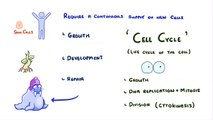 Require a continuous supply of new cells
Skin Cells
Growth
Development
Repair
'Cell Cycle'
(Life cycle of the cell)
Growth
DNA replication + Mitosis
Division (Cytokinesis)